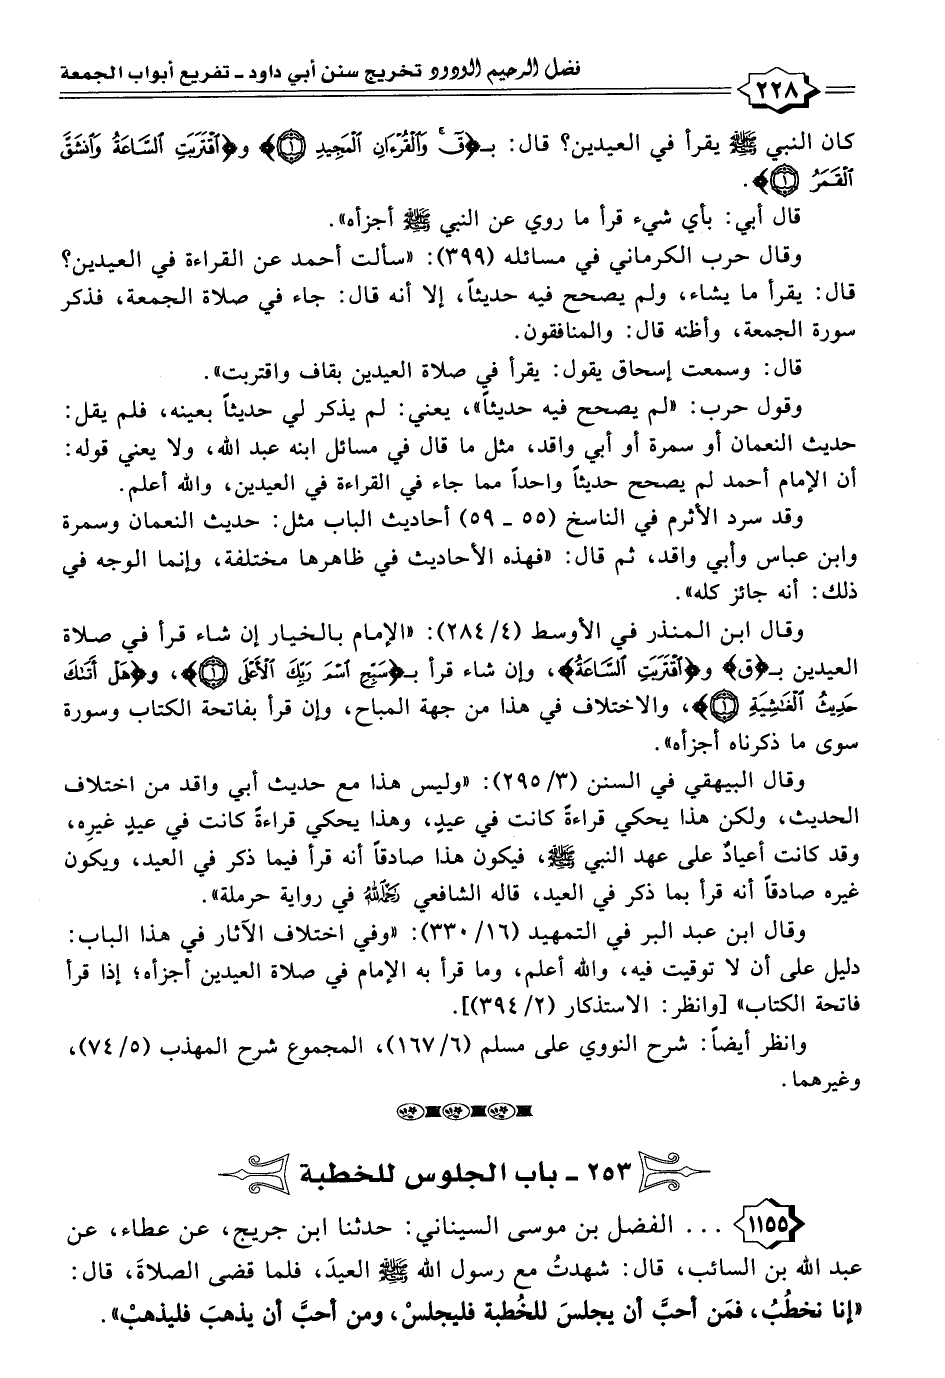 فضل الرحيم الودود تخريج سنن أبي داود ـ تفريع أبواب الجمعة
٢٢٨
كان النبي ﷺ يقرأ في العيدين؟ قال: بـ﴿قٓ وَٱلْقُرْءَانِ ٱلْمَجِيدِ ۝١﴾ و﴿ٱقْتَرَبَتِ ٱلسَّاعَةُ وَٱنشَقَّ
ٱلْقَمَرُ ۝١﴾.
قال أبي: بأي شيء قرأ ما روي عن النبي ﷺ أجزأه».
وقال حرب الكرماني في مسائله (٣٩٩): «سألت أحمد عن القراءة في العيدين؟
قال: يقرأ ما يشاء، ولم يصحح فيه حديثاً، إلا أنه قال: جاء في صلاة الجمعة، فذكر
سورة الجمعة، وأظنه قال: والمنافقون.
قال: وسمعت إسحاق يقول: يقرأ في صلاة العيدين بقاف واقتربت».
وقول حرب: «لم يصحح فيه حديثاً»، يعني: لم يذكر لي حديثاً بعينه، فلم يقل:
حديث النعمان أو سمرة أو أبي واقد، مثل ما قال في مسائل ابنه عبد الله، ولا يعني قوله:
أن الإمام أحمد لم يصحح حديثاً واحداً مما جاء في القراءة في العيدين، والله أعلم.
وقد سرد الأثرم في الناسخ (٥٥ ـ ٥٩) أحاديث الباب مثل: حديث النعمان وسمرة
وابن عباس وأبي واقد، ثم قال: «فهذه الأحاديث في ظاهرها مختلفة، وإنما الوجه في
ذلك: أنه جائز كله».
وقال ابن المنذر في الأوسط (٤/ ٢٨٤): «الإمام بالخيار إن شاء قرأ في صلاة
العيدين بـ﴿ق﴾ و﴿ٱقْتَرَبَتِ ٱلسَّاعَةُ﴾، وإن شاء قرأ بـ﴿سَبِّحِ ٱسْمَ رَبِّكَ ٱلْأَعْلَى ۝١﴾، و﴿هَلْ أَتَىٰكَ
حَدِيثُ ٱلْغَـٰشِيَةِ ۝١﴾، والاختلاف في هذا من جهة المباح، وإن قرأ بفاتحة الكتاب وسورة
سوى ما ذكرناه أجزأه».
وقال البيهقي في السنن (٣/ ٢٩٥): «وليس هذا مع حديث أبي واقد من اختلاف
الحديث، ولكن هذا يحكي قراءةً كانت في عيدٍ، وهذا يحكي قراءةً كانت في عيدٍ غيرِه،
وقد كانت أعيادٌ على عهد النبي ﷺ، فيكون هذا صادقاً أنه قرأ فيما ذكر في العيد، ويكون
غيره صادقاً أنه قرأ بما ذكر في العيد، قاله الشافعي رحمه الله في رواية حرملة».
وقال ابن عبد البر في التمهيد (١٦/ ٣٣٠): «وفي اختلاف الآثار في هذا الباب:
دليل على أن لا توقيت فيه، والله أعلم، وما قرأ به الإمام في صلاة العيدين أجزأه؛ إذا قرأ
فاتحة الكتاب» [وانظر: الاستذكار (٢/ ٣٩٤)].
وانظر أيضاً: شرح النووي على مسلم (٦/ ١٦٧)، المجموع شرح المهذب (٥/ ٧٤)،
وغيرهما.
٢٥٣ ـ باب الجلوس للخطبة
١١٥٥ ... الفضل بن موسى السيناني: حدثنا ابن جريج، عن عطاء، عن
عبد الله بن السائب، قال: شهدتُ مع رسول الله ﷺ العيدَ، فلما قضى الصلاةَ، قال:
«إنا نخطُبُ، فمَن أحبَّ أن يجلسَ للخُطبة فليجلسْ، ومن أحبَّ أن يذهبَ فليذهبْ».